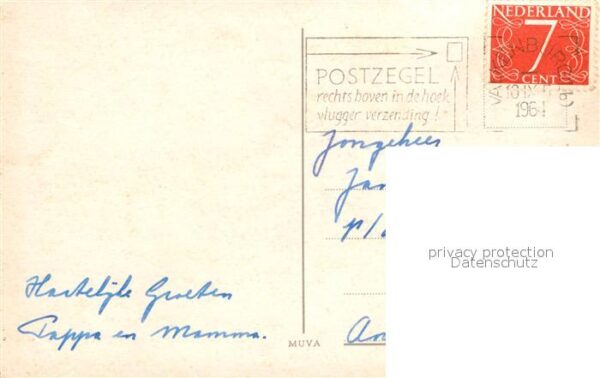 NEDERLAND
7
CENT
POSTZEGEL
rechts boven in de hoek
vlugger verzending!
1964
Jongeheer
Jan
p/a
privacy protection
Datenschutz
Hartelijke Groeten
Pappa en Mamma.
MUVA